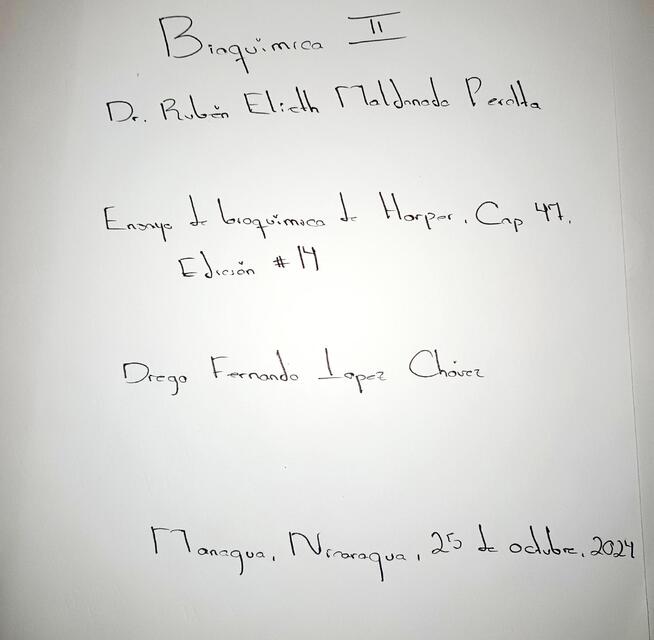 Bioquímica II
Dr. Rubén Elieth Maldonado Peralta
Ensayo de bioquímica de Harper. Cap 47.
Edición #14
Diego Fernando Lopez Chávez
Managua, Nicaragua, 25 de octubre, 2024